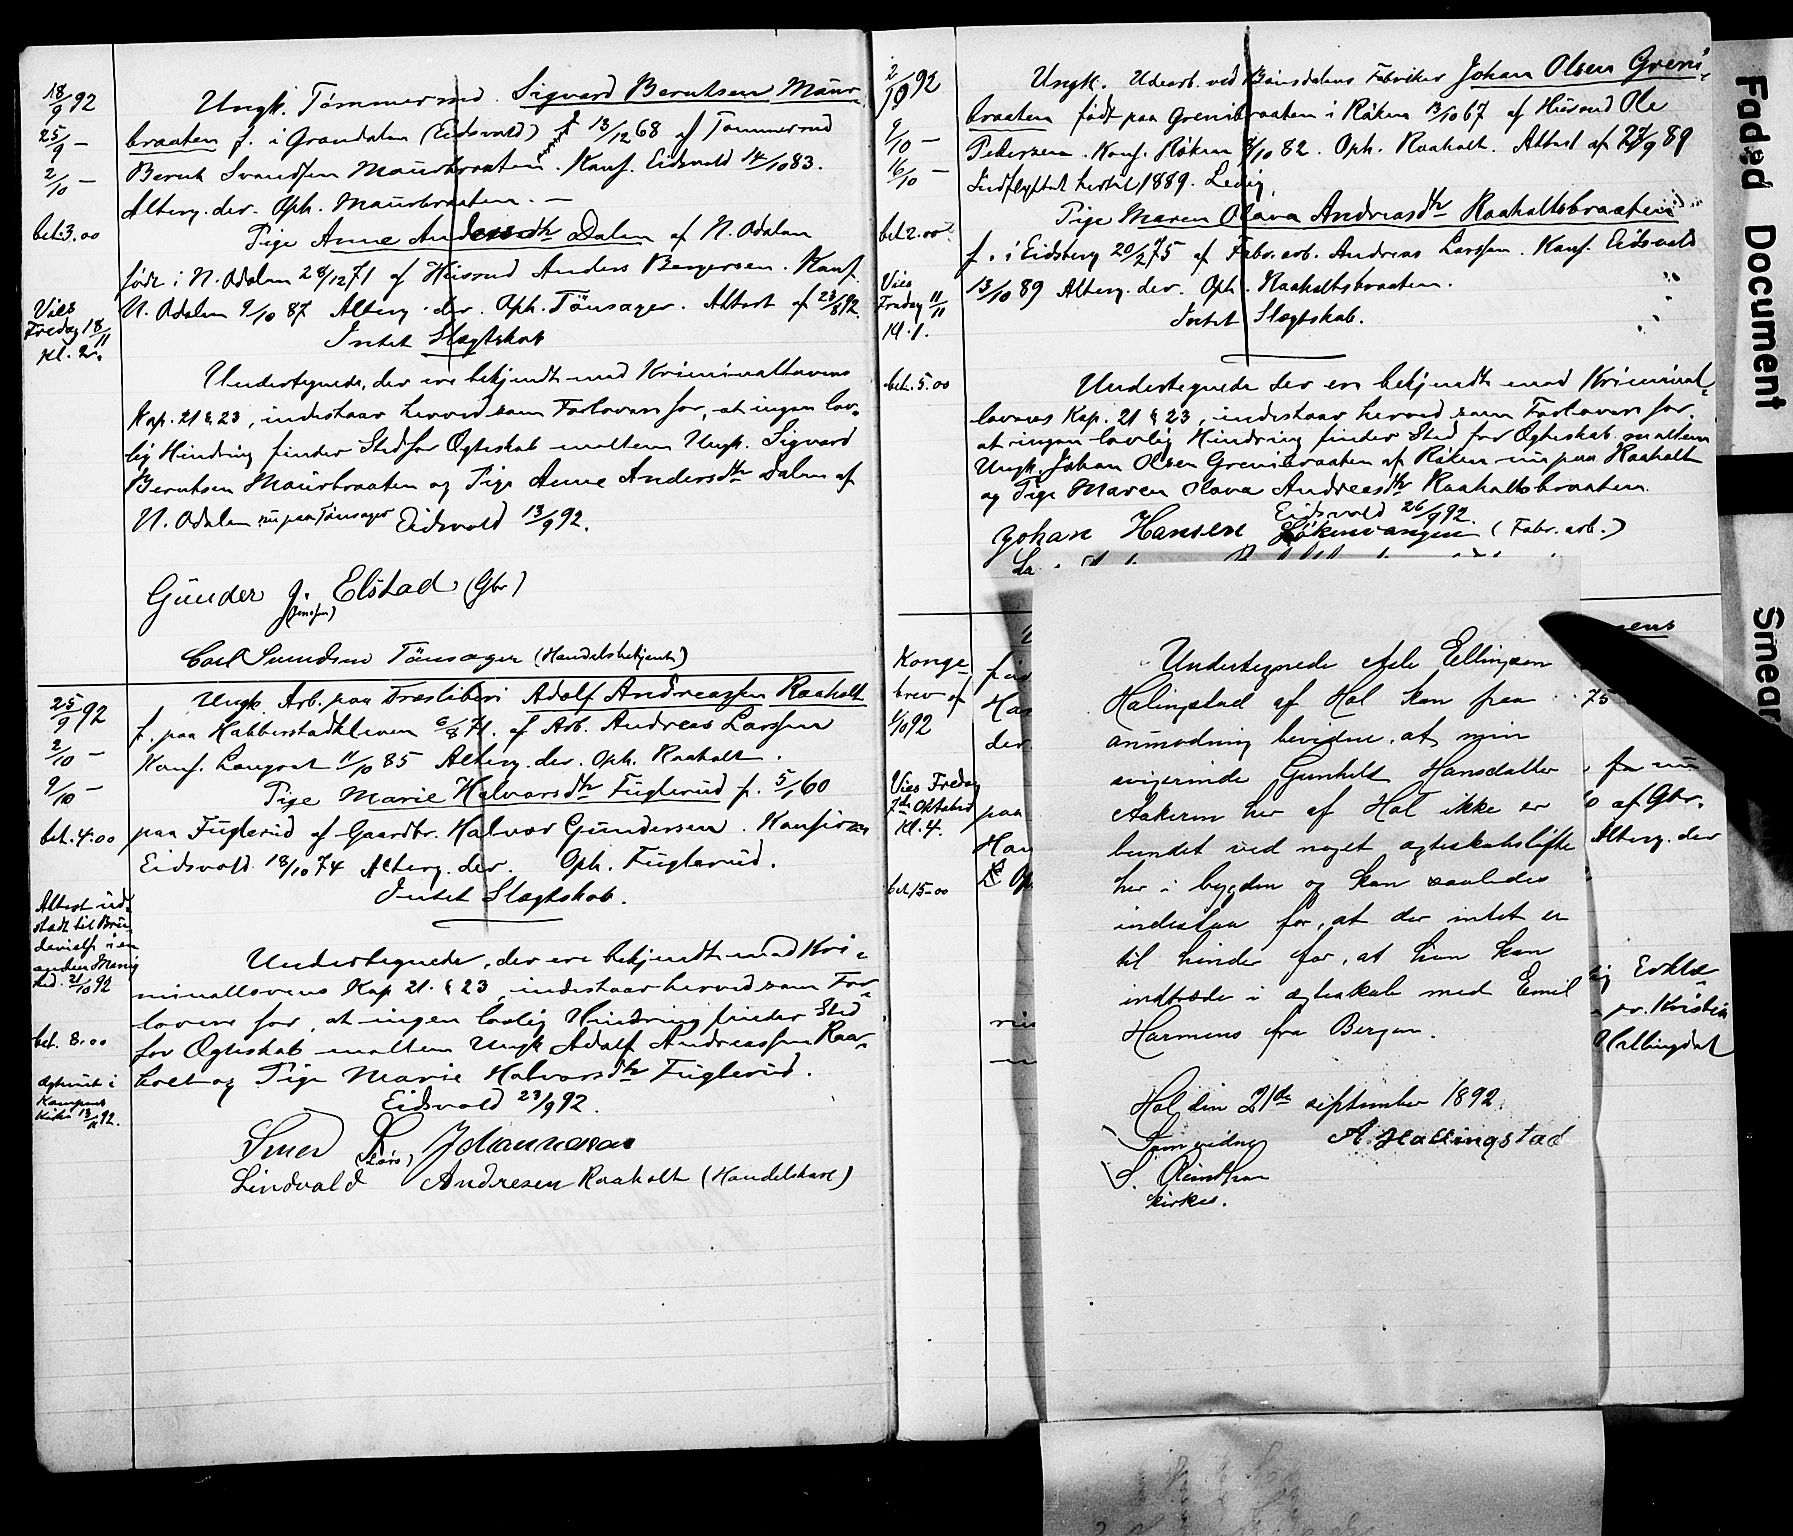 18/9 92
25/9 —
2/10 —
bet. 3.00
Vies
Fredag 18/11
Kl. 2.
Ungk. Tømmermd. Sigvard Berntsen Maur-
braaten f. i Grandalen (Eidsvold) 13/12 68 af Tømmermd
Bernt Svendsen Maurbraaten. Konf. Eidsvold 14/10 83.
Alterg. der. Oph. Maurbraaten. —
Pige Anne Andersdtr Dalen af N. Odalen
født i N. Odalen 28/12 71 af Husmd Anders Bergersen. Konf.
N. Odalen 9/10 87 Alterg. der. Oph. Tønsager. Attest af 23/8 92.
Intet Slægtskab
Undertegnede, der ere bekjendt med Kriminallovens
Kap. 21 § 23, indestaar herved som Forlovere for, at ingen lov-
lig Hindring finder Sted for Ægteskab mellem Ungk. Sigvard
Berntsen Maurbraaten og Pige Anne Andersdtr Dalen af
N. Odalen nu paa Tønsager Eidsvold 13/9 92.
Gunder J. Elstad (Gbr)
(Jensen)
Carl Svendsen Tønsager (Handelsbetjent)
25/9 92
2/10 —
9/10 —
bet. 4.00
Attest ud-
stedt til Bru-
devielse i en
anden Menig
hed. 21/10 92
bet. 8.00
Ægteviet i
Kampens
Kirke 13/11 92.
Ungk. Arb. paa Træsliberi Adolf Andreassen Raaholt
f. paa Habberstadkleven 6/8 71. af Arb. Andreas Larssen
Konf. Langset 11/10 85 Alterg. der. Oph. Raaholt.
Pige Marie Halvorsdtr Fuglerud f. 5/1 60
paa Fuglerud af Gaardbr. Halvor Gundersen. Konfirm
Eidsvold 18/10 74 Alterg. der. Oph. Fuglerud.
Intet Slægtskab.
Undertegnede, der ere bekjendt med Kri-
minallovens Kap 21. § 23, indestaar herved som For-
lovere for, at ingen lovlig Hindring finder Sted
for Ægteskab mellem Ungk Adolf Andreassen Raa-
holt og Pige Marie Halvorsdtr Fuglerud.
Eidsvold 23/9 92.
Johannesen
Lindvald Andresen Raaholt (Handelskarl)
2/10 92
9/10 —
16/10 —
bet 2.00
Vies
Fredag 11/11
Kl. 1.
bet. 5.00
Ungk. Udearb. ved Bønsdalens Fabriker Johan Olsen Greni-
braaten født paa Grenibraaten i Røken 13/10 67 af Husmd Ole
Pedersen. Konf. Røken 8/10 82. Oph. Raaholt. Attest af 27/9 89
Indflyttet hertil 1889. Ledig.
Pige Maren Olava Andreasdtr Raaholtsbraaten
f. i Eidsberg 20/2 75 af Fabr. arb. Andreas Larssen. Konf. Eidsvold
13/10 89 Alterg. der. Oph. Raaholtsbraaten.
Intet Slægtskab.
Undertegnede der ere bekjendt med Kriminal-
lovens Kap. 21 § 23, indestaar herved som Forlovere for,
at ingen lovlig Hindring finder Sted for Ægteskab mellem
Ungk. Johan Olsen Grenibraaten af Røken nu paa Raaholt
og Pige Maren Olava Andreasdtr Raaholtsbraaten.
Eidsvold 26/9 92.
Johan Hansen Løkenvangen (Fabr. arb.)
Konge-
brev af
1/10 92
Vies Fredag
7de Oktober
Kl. 4.
bet 15-00
Undertegnede Asle Ellingsen
Halingstad af Hol kan fraa
anmodning bevidne, at min
svigerinde Gunhild Hansdatter
Aakeren her af Hol ikke er
bundet ved noget ægteskabsløfte
her i bygden og kan saaledes
indestaa for, at der intet er
til hinder for, at hun kan
indtræde i ægteskab med Emil
Harmens fra Bergen.
Hol den 21de september 1892.
A. Hallingstad
kirkes.
75
af Gbr.
Alterg. der
Erklæ-
pr. Kristin
Hallingdal
Faded Document
Smear